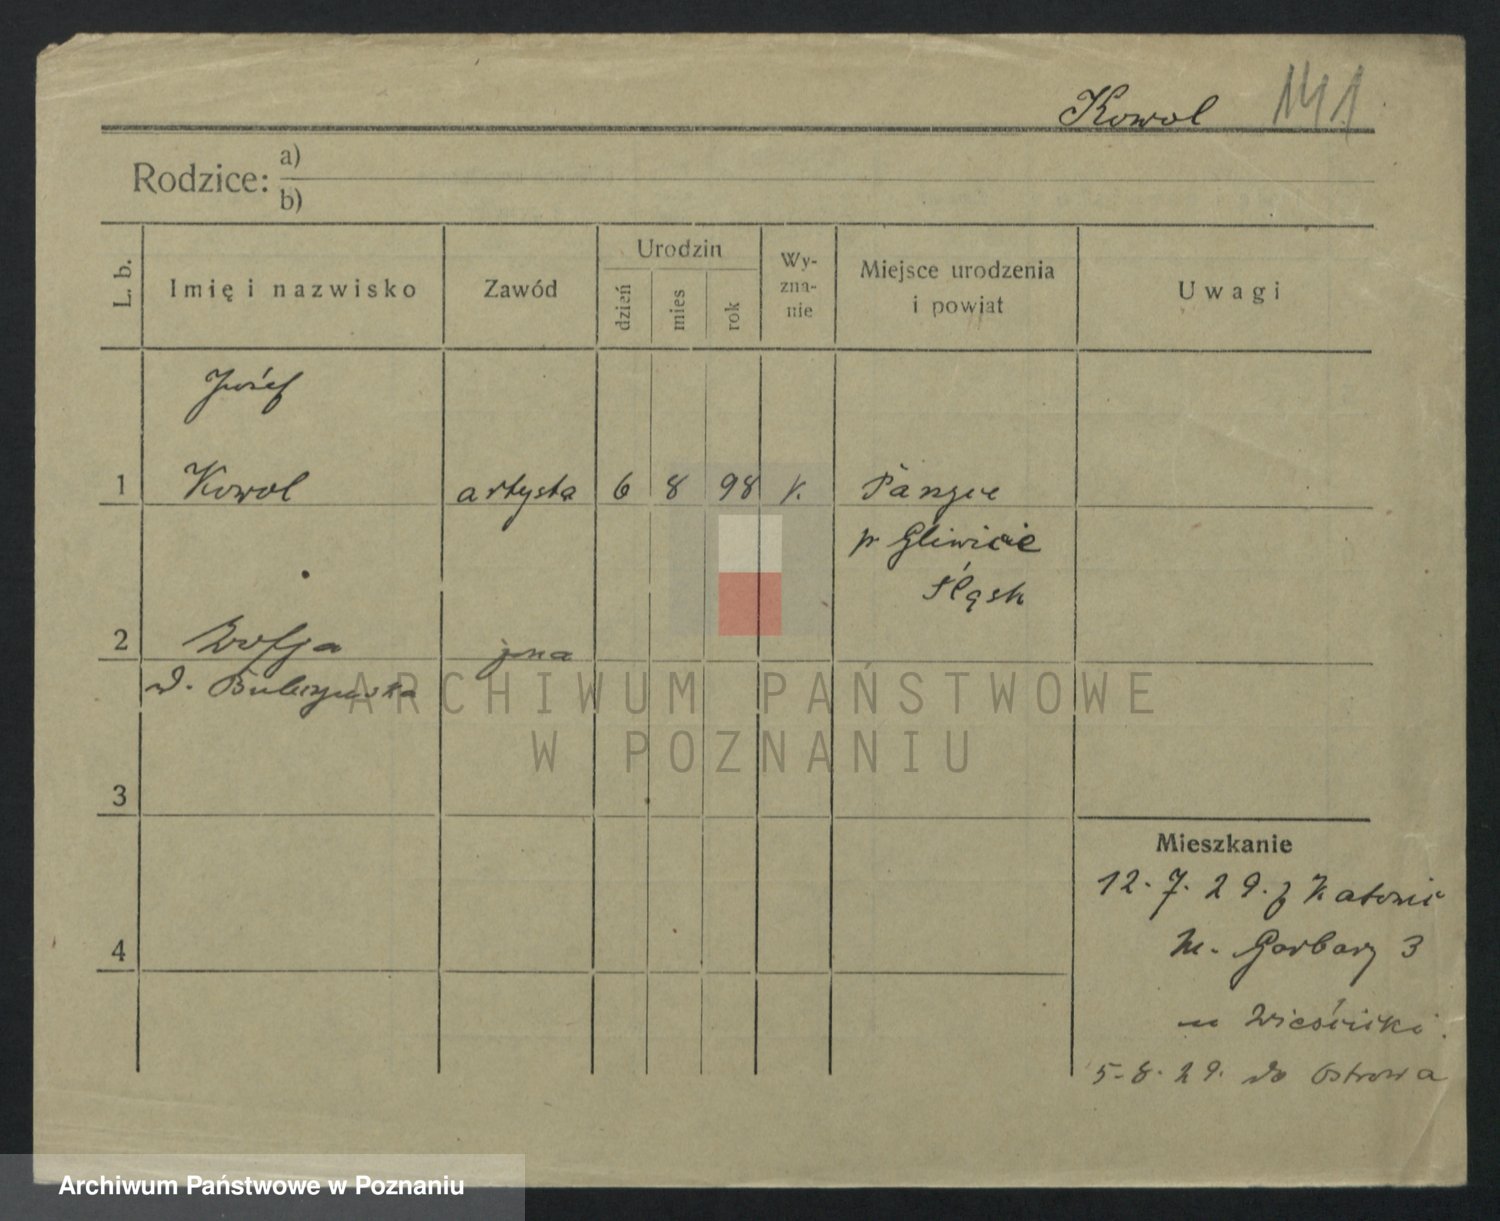 Kowol 141
Rodzice: a)
b)
L. b.
Imię i nazwisko
Zawód
Urodzin
dzień
mies
rok
Wy-
zna-
nie
Miejsce urodzenia
i powiat
Uwagi
Józef
1 Kowol artysta 6 8 98 k.
p Gliwice
Śląsk
2 Zofja żona
d.
3
4
Mieszkanie
12. 7. 29. z Katowic
m. Garbary 3
5. 8. 29. do Ostrowa
ARCHIWUM PAŃSTWOWE
W POZNANIU
Archiwum Państwowe w Poznaniu